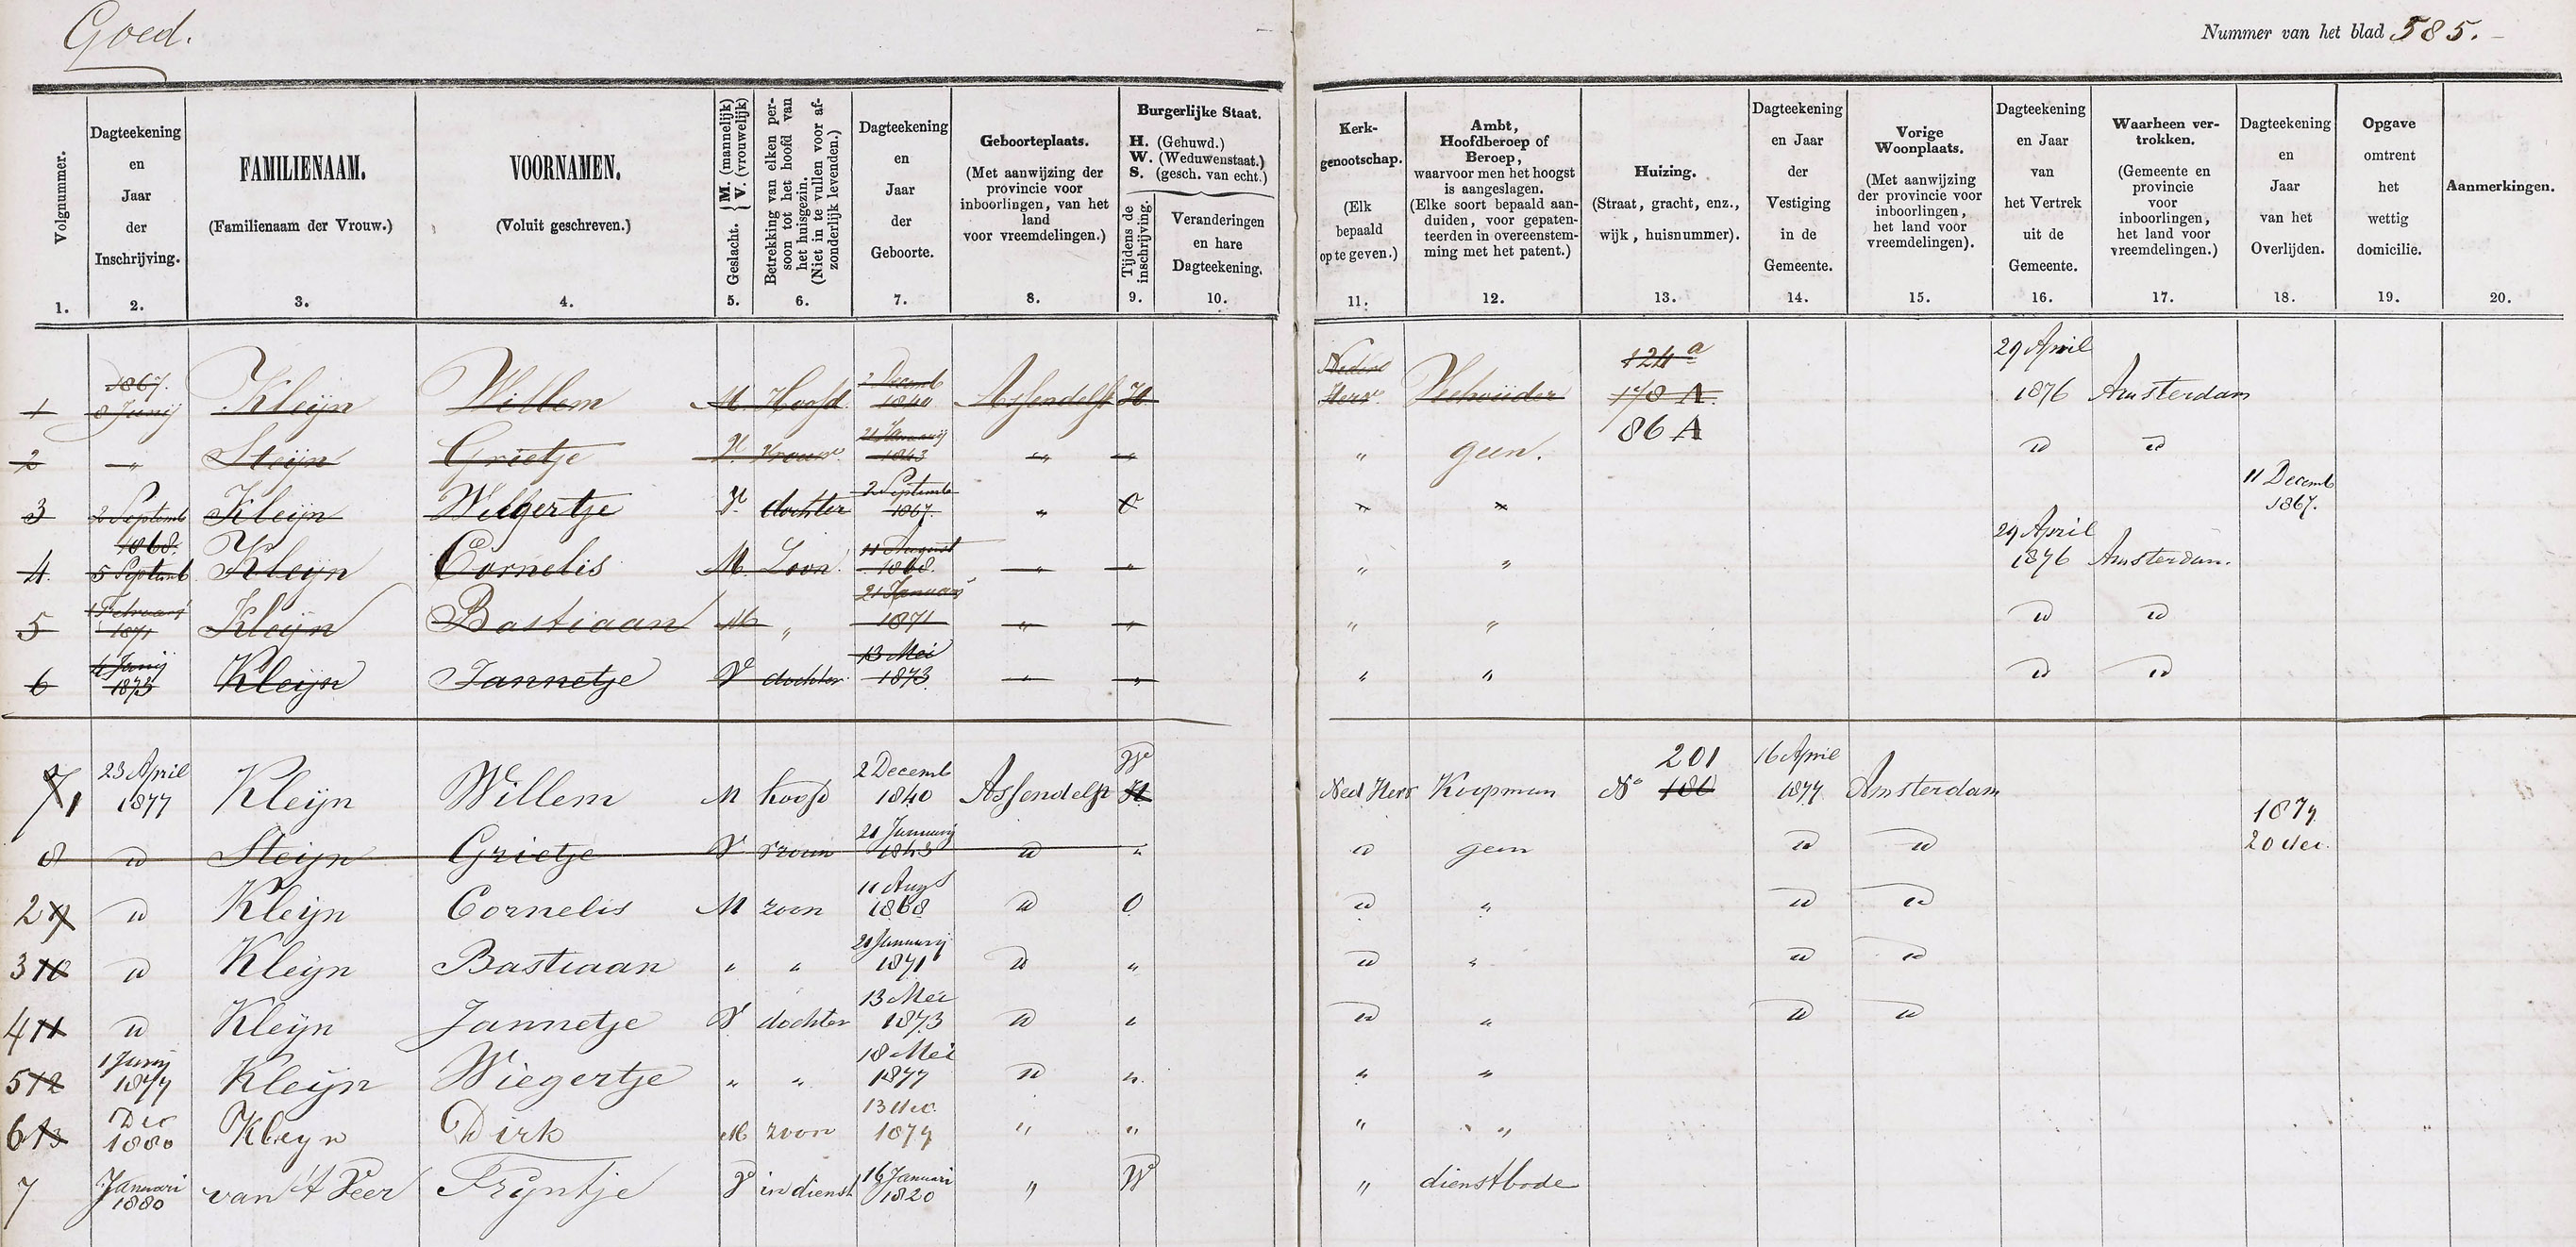 Goed.
Nummer van het blad 585.
Volgnummer.
1.
Dagteekening
en
Jaar
der
Inschrijving.
2.
FAMILIENAAM.
(Familienaam der Vrouw.)
3.
VOORNAMEN.
(Voluit geschreven.)
4.
Geslacht. { M. (mannelijk)
V. (vrouwelijk)
5.
Betrekking van elken per-
soon tot het hoofd van
het huisgezin.
(Niet in te vullen voor af-
zonderlijk levenden.)
6.
Dagteekening
en
Jaar
der
Geboorte.
7.
Geboorteplaats.
(Met aanwijzing der
provincie voor
inboorlingen, van het
land
voor vreemdelingen.)
8.
Burgerlijke Staat.
H. (Gehuwd.)
W. (Weduwenstaat.)
S. (gesch. van echt.)
Tijdens de
inschrijving.
9.
Veranderingen
en hare
Dagteekening.
10.
Kerk-
genootschap.
(Elk
bepaald
op te geven.)
11.
Ambt,
Hoofdberoep of
Beroep,
waarvoor men het hoogst
is aangeslagen.
(Elke soort bepaald aan-
duiden, voor gepaten-
teerden in overeenstem-
ming met het patent.)
12.
Huizing.
(Straat, gracht, enz.,
wijk, huisnummer).
13.
Dagteekening
en Jaar
der
Vestiging
in de
Gemeente.
14.
Vorige
Woonplaats.
(Met aanwijzing
der provincie voor
inboorlingen,
het land voor
vreemdelingen).
15.
Dagteekening
en Jaar
van
het Vertrek
uit de
Gemeente.
16.
Waarheen ver-
trokken.
(Gemeente en
provincie
voor
inboorlingen,
het land voor
vreemdelingen.)
17.
Dagteekening
en
Jaar
van het
Overlijden.
18.
Opgave
omtrent
het
wettig
domicilie.
19.
Aanmerkingen.
20.
1 1867. 8 Junij Kleijn Willem M. Hoofd. 2 Decemb 1840 Assendelft H. Nederd Herv. Veehouder 124a 178 A. 86 A 29 April 1876 Amsterdam
2 " Steijn Grietje V. Vrouw 21 Januarij 1843 " " " geen. id id
3 2 Septemb Kleijn Welgertje V. dochter 2 Septemb 1867. " O " " 11 Decemb 1867.
4. 1868. 5 Septemb Kleijn Cornelis M. Zoon. 11 August 1868. " " " " 29 April 1876 Amsterdam.
5 1 Februarij 1871 Kleijn Bastiaan M " 21 Januarij 1871 " " " " id id
6 4 Junij 1873 Kleijn Jannetje V dochter 13 Mei 1873 " " " " id id
7 1 23 April 1877 Kleijn Willem M hoofd 2 Decemb 1840 Assendelft W H Ned Herv Koopman No 201 186 16 April 1877 Amsterdam
8 id Steijn Grietje V vrouw 21 Januarij 1843 id " id geen id id 1879 20 dec.
2 9 id Kleijn Cornelis M zoon 11 Augs 1868 id O id " id id
3 10 id Kleijn Bastiaan " " 21 Januarij 1871 id " id " id id
4 11 id Kleijn Jannetje V dochter 13 Mei 1873 id " id " id id
5 12 1 Junij 1877 Kleijn Wiegertje " " 18 Mei 1877 id " " "
6 13 Dec 1880 Kleyn Dirk M zoon 13 dec. 1879 " " " "
7 Januari 1880 van 't Veer Trijntje V in dienst 16 Januari 1820 " W " dienstbode